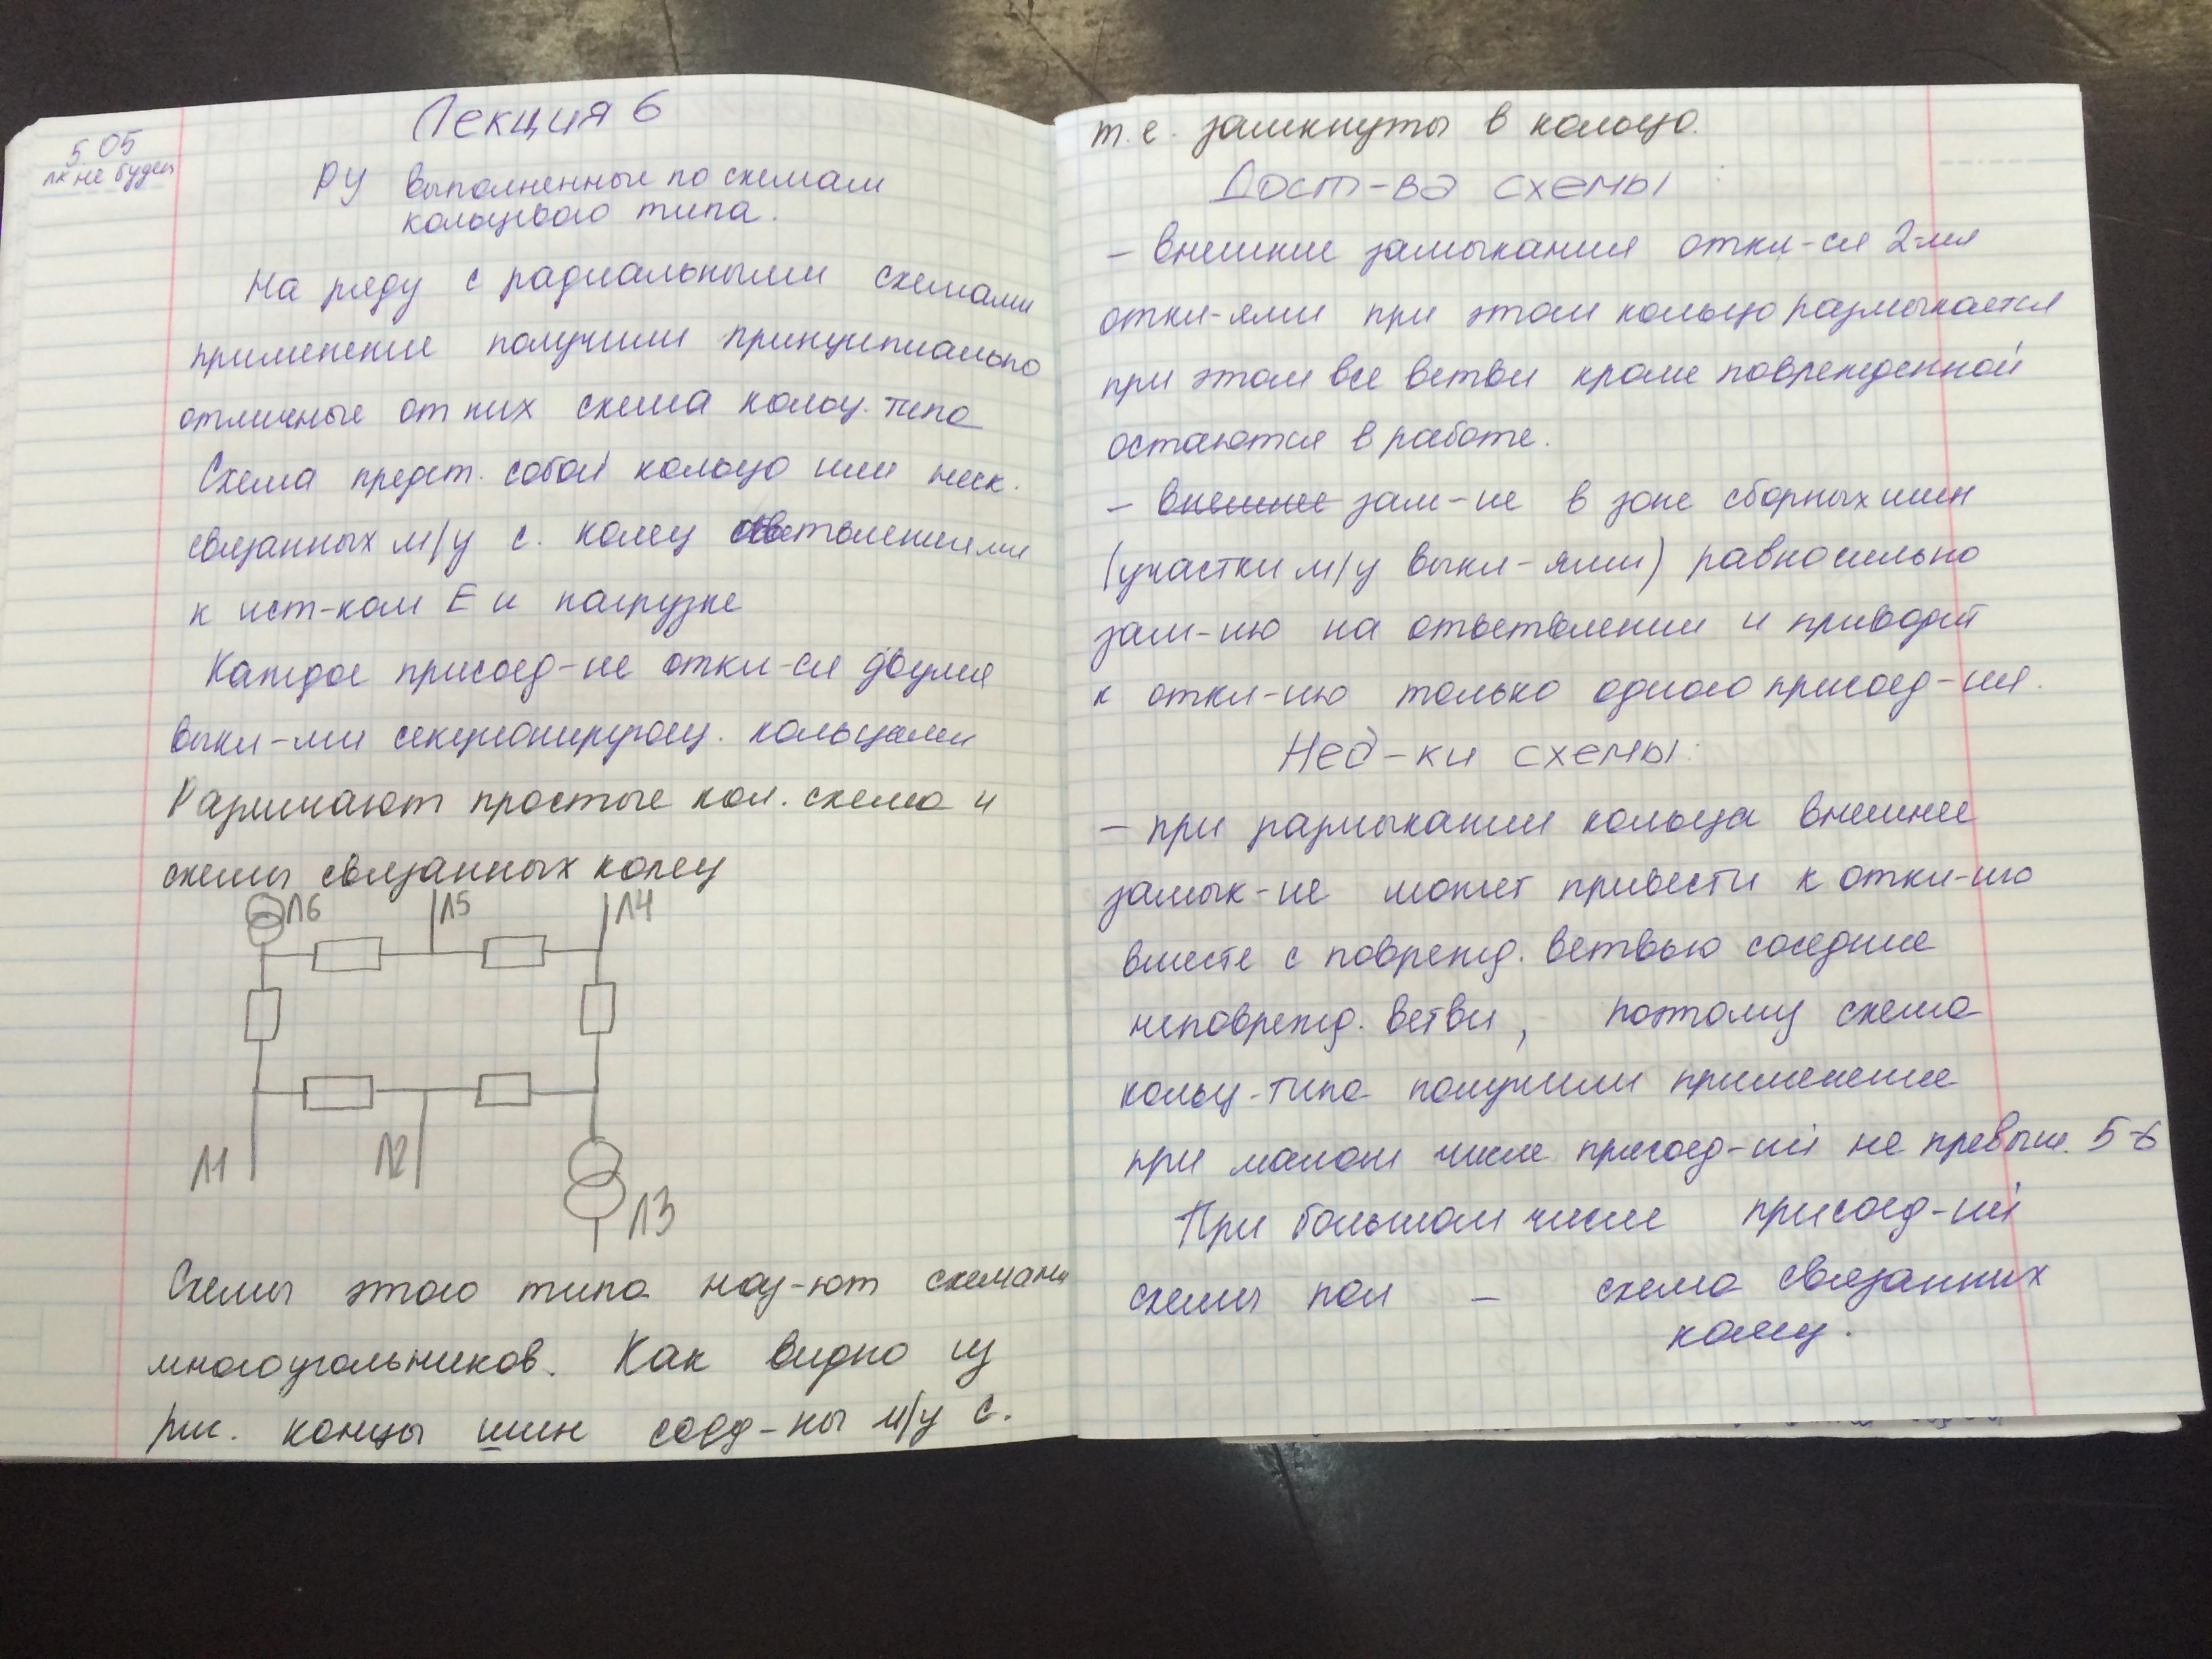 5.05
лк не будет
Лекция 6
РУ выполненные по схемам
кольцевого типа.
На ряду с радиальными схемами
применение получили принципиально
отличные от них схема кольц. типа
Схема предст. собой кольцо или неск.
связанных м/у с. колец ответвлениями
к ист-кам Е и нагрузке
Каждое присоед-ие откл-ся двумя
выкл-ми секционирующ. кольцами
Различают простые кол. схема и
схемы связанных колец
Л6 Л5 Л4
Л1 Л2 Л3
Схемы этого типа наз-ют схемами
многоугольников. Как видно из
рис. концы шин соед-ны м/у с.
т.е. замкнуты в кольцо.
Дост-ва схемы:
- внешние замыкания откл-ся 2-мя
откл-ями при этом кольцо размыкается
при этом все ветви кроме поврежденной
остаются в работе.
- внешнее зам-ие в зоне сборных шин
(участки м/у выкл-ями) равносильно
зам-ию на ответвлении и приводит
к откл-ию только одного присоед-ия.
Нед-ки схемы:
- при размыкании кольца внешнее
замык-ие может привести к откл-ию
вместе с поврежд. ветвью соседние
неповрежд. ветви, поэтому схема
кольц-типа получили применение
при малом числе присоед-ий не превыш. 5-6
При большом числе присоед-ий
схемы пол - схема связанных
колец.